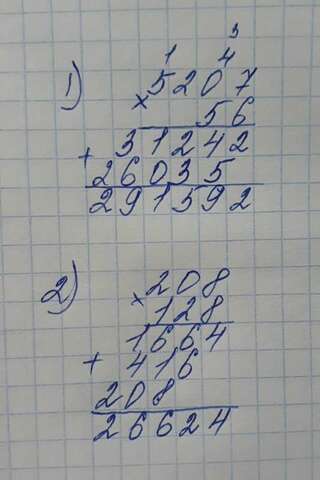 3
1 4
1) 5207
× 56
31242
+
26035
291592
2) 208
× 128
1664
+ 416
208
26624